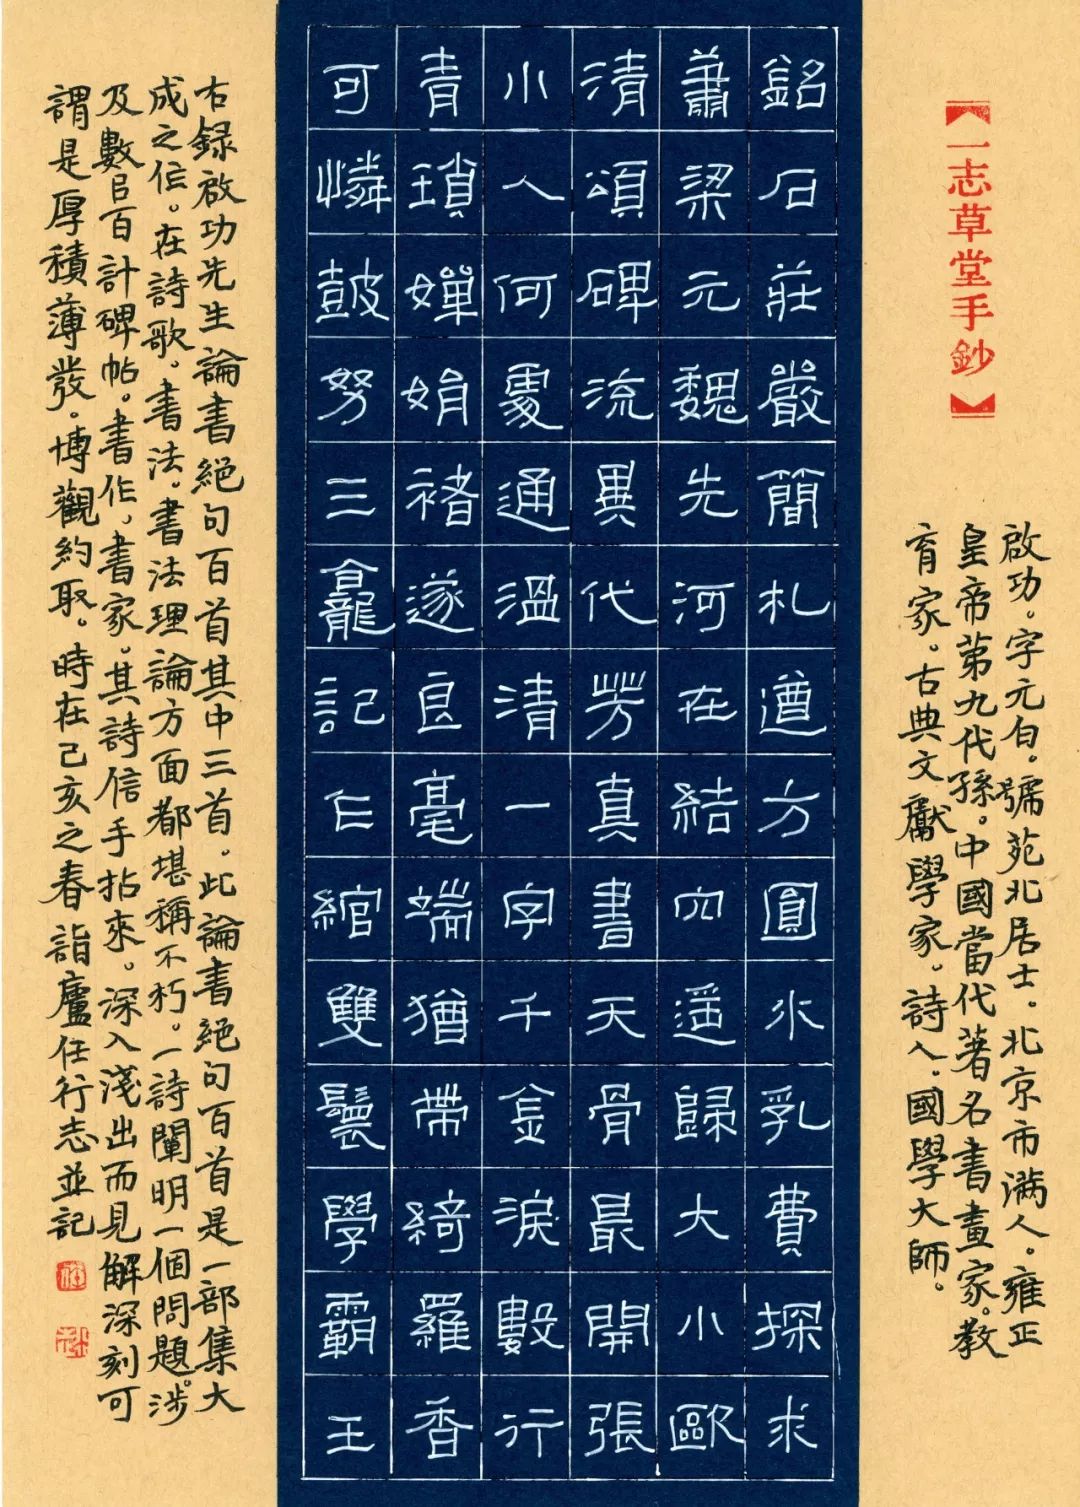 【一志草堂手鈔】
啟功。字元白。號苑北居士。北京市满人。雍正
皇帝第九代孫。中國當代著名書畫家。教
育家。古典文獻學家。詩人。國學大師。
銘石莊嚴簡札遒方圓水乳費探求
蕭梁元魏先河在結穴遥歸大小歐
清頌碑流異代芳真書天骨最開張
小人何處通溫清一字千金淚數行
青瑣嬋娟褚遂良毫端猶帶綺羅香
可憐鼓努三龕記亡綰雙鬟學霸王
右録啟功先生論書絕句百首其中三首。此論書絕句百首是一部集大
成之作。在詩歌。書法。書法理論方面都堪稱不朽。一詩闡明一個問題。涉
及數以百計碑帖。書作、書家。其詩信手拈來。深入淺出而見解深刻可
謂是厚積薄發。博觀約取。時在己亥之春詣廬任行志並記